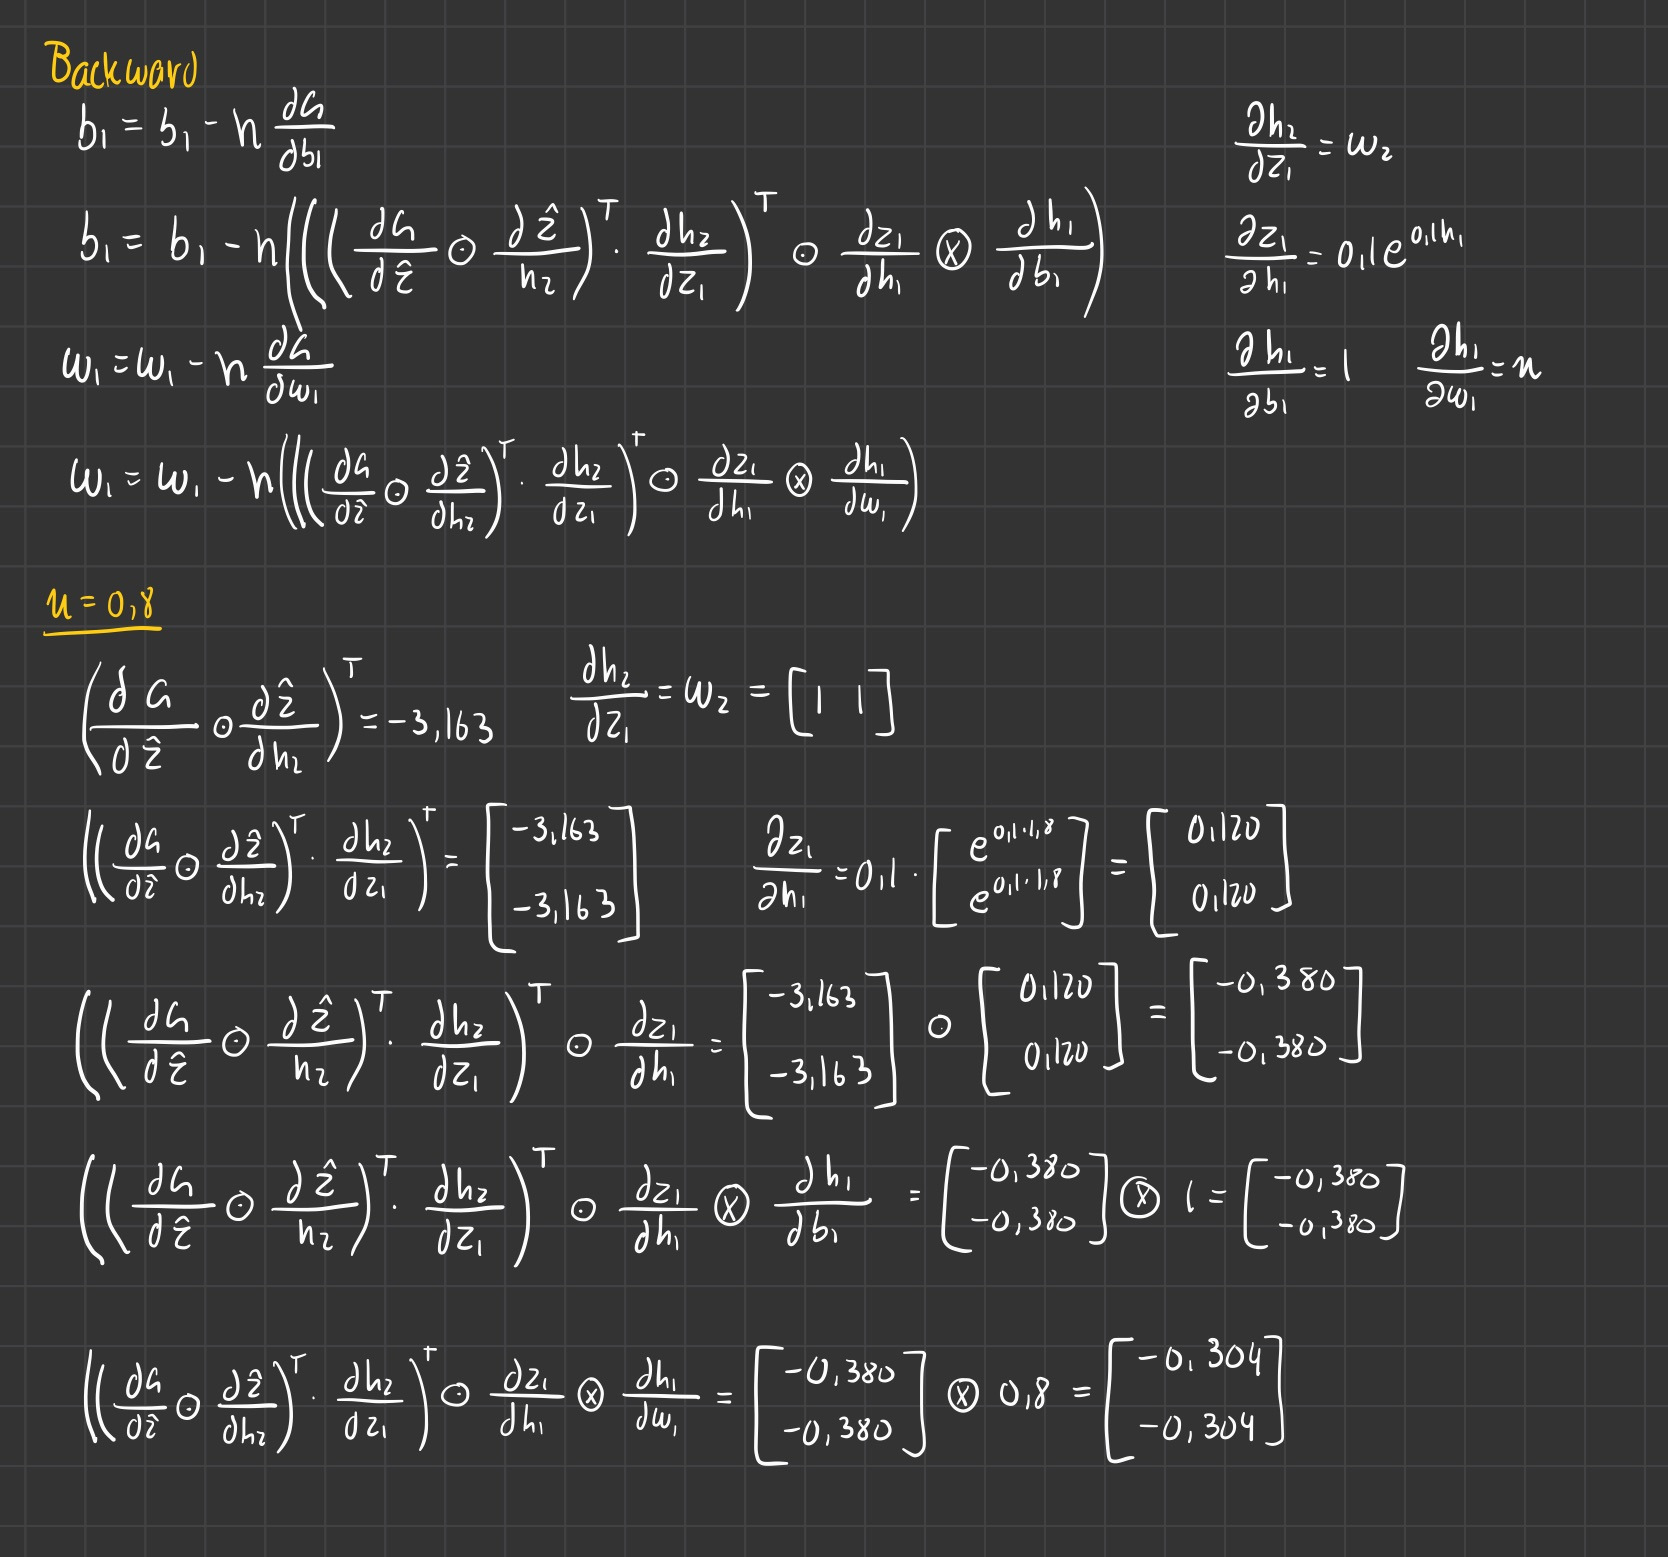 Backward
b₁ = b₁ - n ∂G/∂b₁
∂h₂/∂z₁ = w₂
b₁ = b₁ - n(((∂G/∂ẑ ⊙ ∂ẑ/h₂)ᵀ · ∂h₂/∂z₁)ᵀ ⊙ ∂z₁/∂h₁ ⊗ ∂h₁/∂b₁)
∂z₁/∂h₁ = 0,1e^(0,1h₁)
w₁ = w₁ - n ∂G/∂w₁
∂h₁/∂b₁ = 1 ∂h₁/∂w₁ = x
w₁ = w₁ - n(((∂G/∂ẑ ⊙ ∂ẑ/∂h₂)ᵀ · ∂h₂/∂z₁)ᵀ ⊙ ∂z₁/∂h₁ ⊗ ∂h₁/∂w₁)
x = 0,8
(∂G/∂ẑ ⊙ ∂ẑ/∂h₂)ᵀ = -3,163 ∂h₂/∂z₁ = w₂ = [1 1]
((∂G/∂ẑ ⊙ ∂ẑ/∂h₂)ᵀ · ∂h₂/∂z₁)ᵀ = [-3,163 -3,163] ∂z₁/∂h₁ = 0,1 · [e^(0,1·1,8) e^(0,1·1,8)] = [0,120 0,120]
((∂G/∂ẑ ⊙ ∂ẑ/h₂)ᵀ · ∂h₂/∂z₁)ᵀ ⊙ ∂z₁/∂h₁ = [-3,163 -3,163] ⊙ [0,120 0,120] = [-0,380 -0,380]
((∂G/∂ẑ ⊙ ∂ẑ/h₂)ᵀ · ∂h₂/∂z₁)ᵀ ⊙ ∂z₁/∂h₁ ⊗ ∂h₁/∂b₁ = [-0,380 -0,380] ⊗ 1 = [-0,380 -0,380]
((∂G/∂ẑ ⊙ ∂ẑ/∂h₂)ᵀ · ∂h₂/∂z₁)ᵀ ⊙ ∂z₁/∂h₁ ⊗ ∂h₁/∂w₁ = [-0,380 -0,380] ⊗ 0,8 = [-0,304 -0,304]